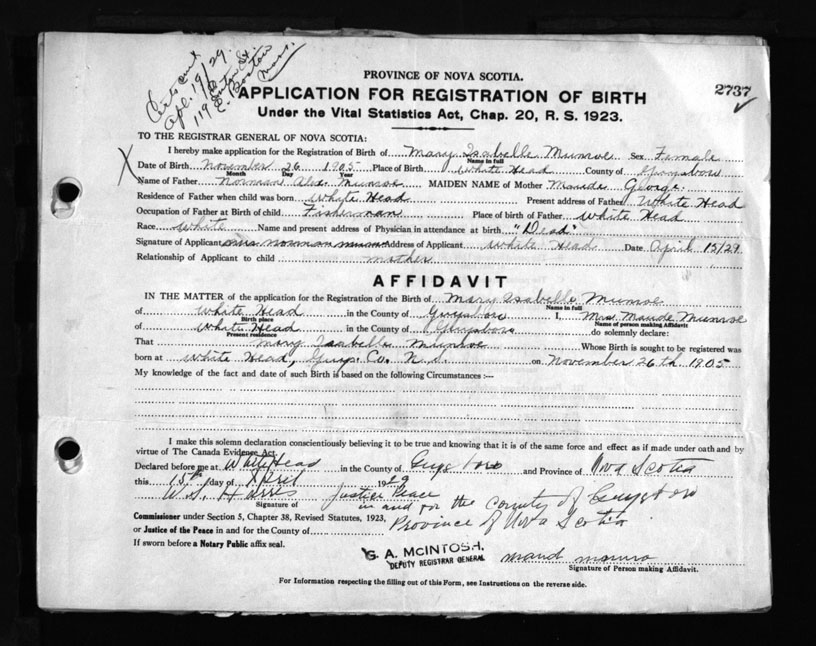 Cert sent
Apl. 19/29.
119 St.
E. Boston
Mass.
PROVINCE OF NOVA SCOTIA.
2737
APPLICATION FOR REGISTRATION OF BIRTH
Under the Vital Statistics Act, Chap. 20, R. S. 1923.
TO THE REGISTRAR GENERAL OF NOVA SCOTIA:
I hereby make application for the Registration of Birth of Mary Isabelle Munroe Sex Female
Name in full
X
Date of Birth November 26 1905 Place of Birth White Head County of Guysboro
Month Day Year
Name of Father Norman Alex. Munroe MAIDEN NAME of Mother Maude George
Residence of Father when child was born White Head Present address of Father White Head
Occupation of Father at Birth of child Fisherman Place of birth of Father White Head
Race White Name and present address of Physician in attendance at birth "Dead"
Signature of Applicant Mrs Norman Munro Address of Applicant White Head Date April 15/29
Relationship of Applicant to child mother
AFFIDAVIT
IN THE MATTER of the application for the Registration of the Birth of Mary Isabelle Munroe
Name in full
of White Head in the County of Guysboro I, Mrs Maude Munroe
Birth place Name of person making Affidavit
of White Head in the County of Guysboro do solemnly declare:
Present residence
That Mary Isabelle Munroe Whose Birth is sought to be registered was
born at White Head, Guys. Co. N.S. on November 26th 1905
My knowledge of the fact and date of such Birth is based on the following Circumstances :—
I make this solemn declaration conscientiously believing it to be true and knowing that it is of the same force and effect as if made under oath and by
virtue of The Canada Evidence Act.
Declared before me at White Head in the County of Guysboro and Province of Nova Scotia
this 15th day of April 1929
W. S. Harris Justice Peace
Signature of in and for the County of Guysboro
Commissioner under Section 5, Chapter 38, Revised Statutes, 1923, Province of Nova Scotia
or Justice of the Peace in and for the County of
If sworn before a Notary Public affix seal.
G. A. McINTOSH,
DEPUTY REGISTRAR GENERAL
Maud Munro
Signature of Person making Affidavit.
For Information respecting the filling out of this Form, see Instructions on the reverse side.